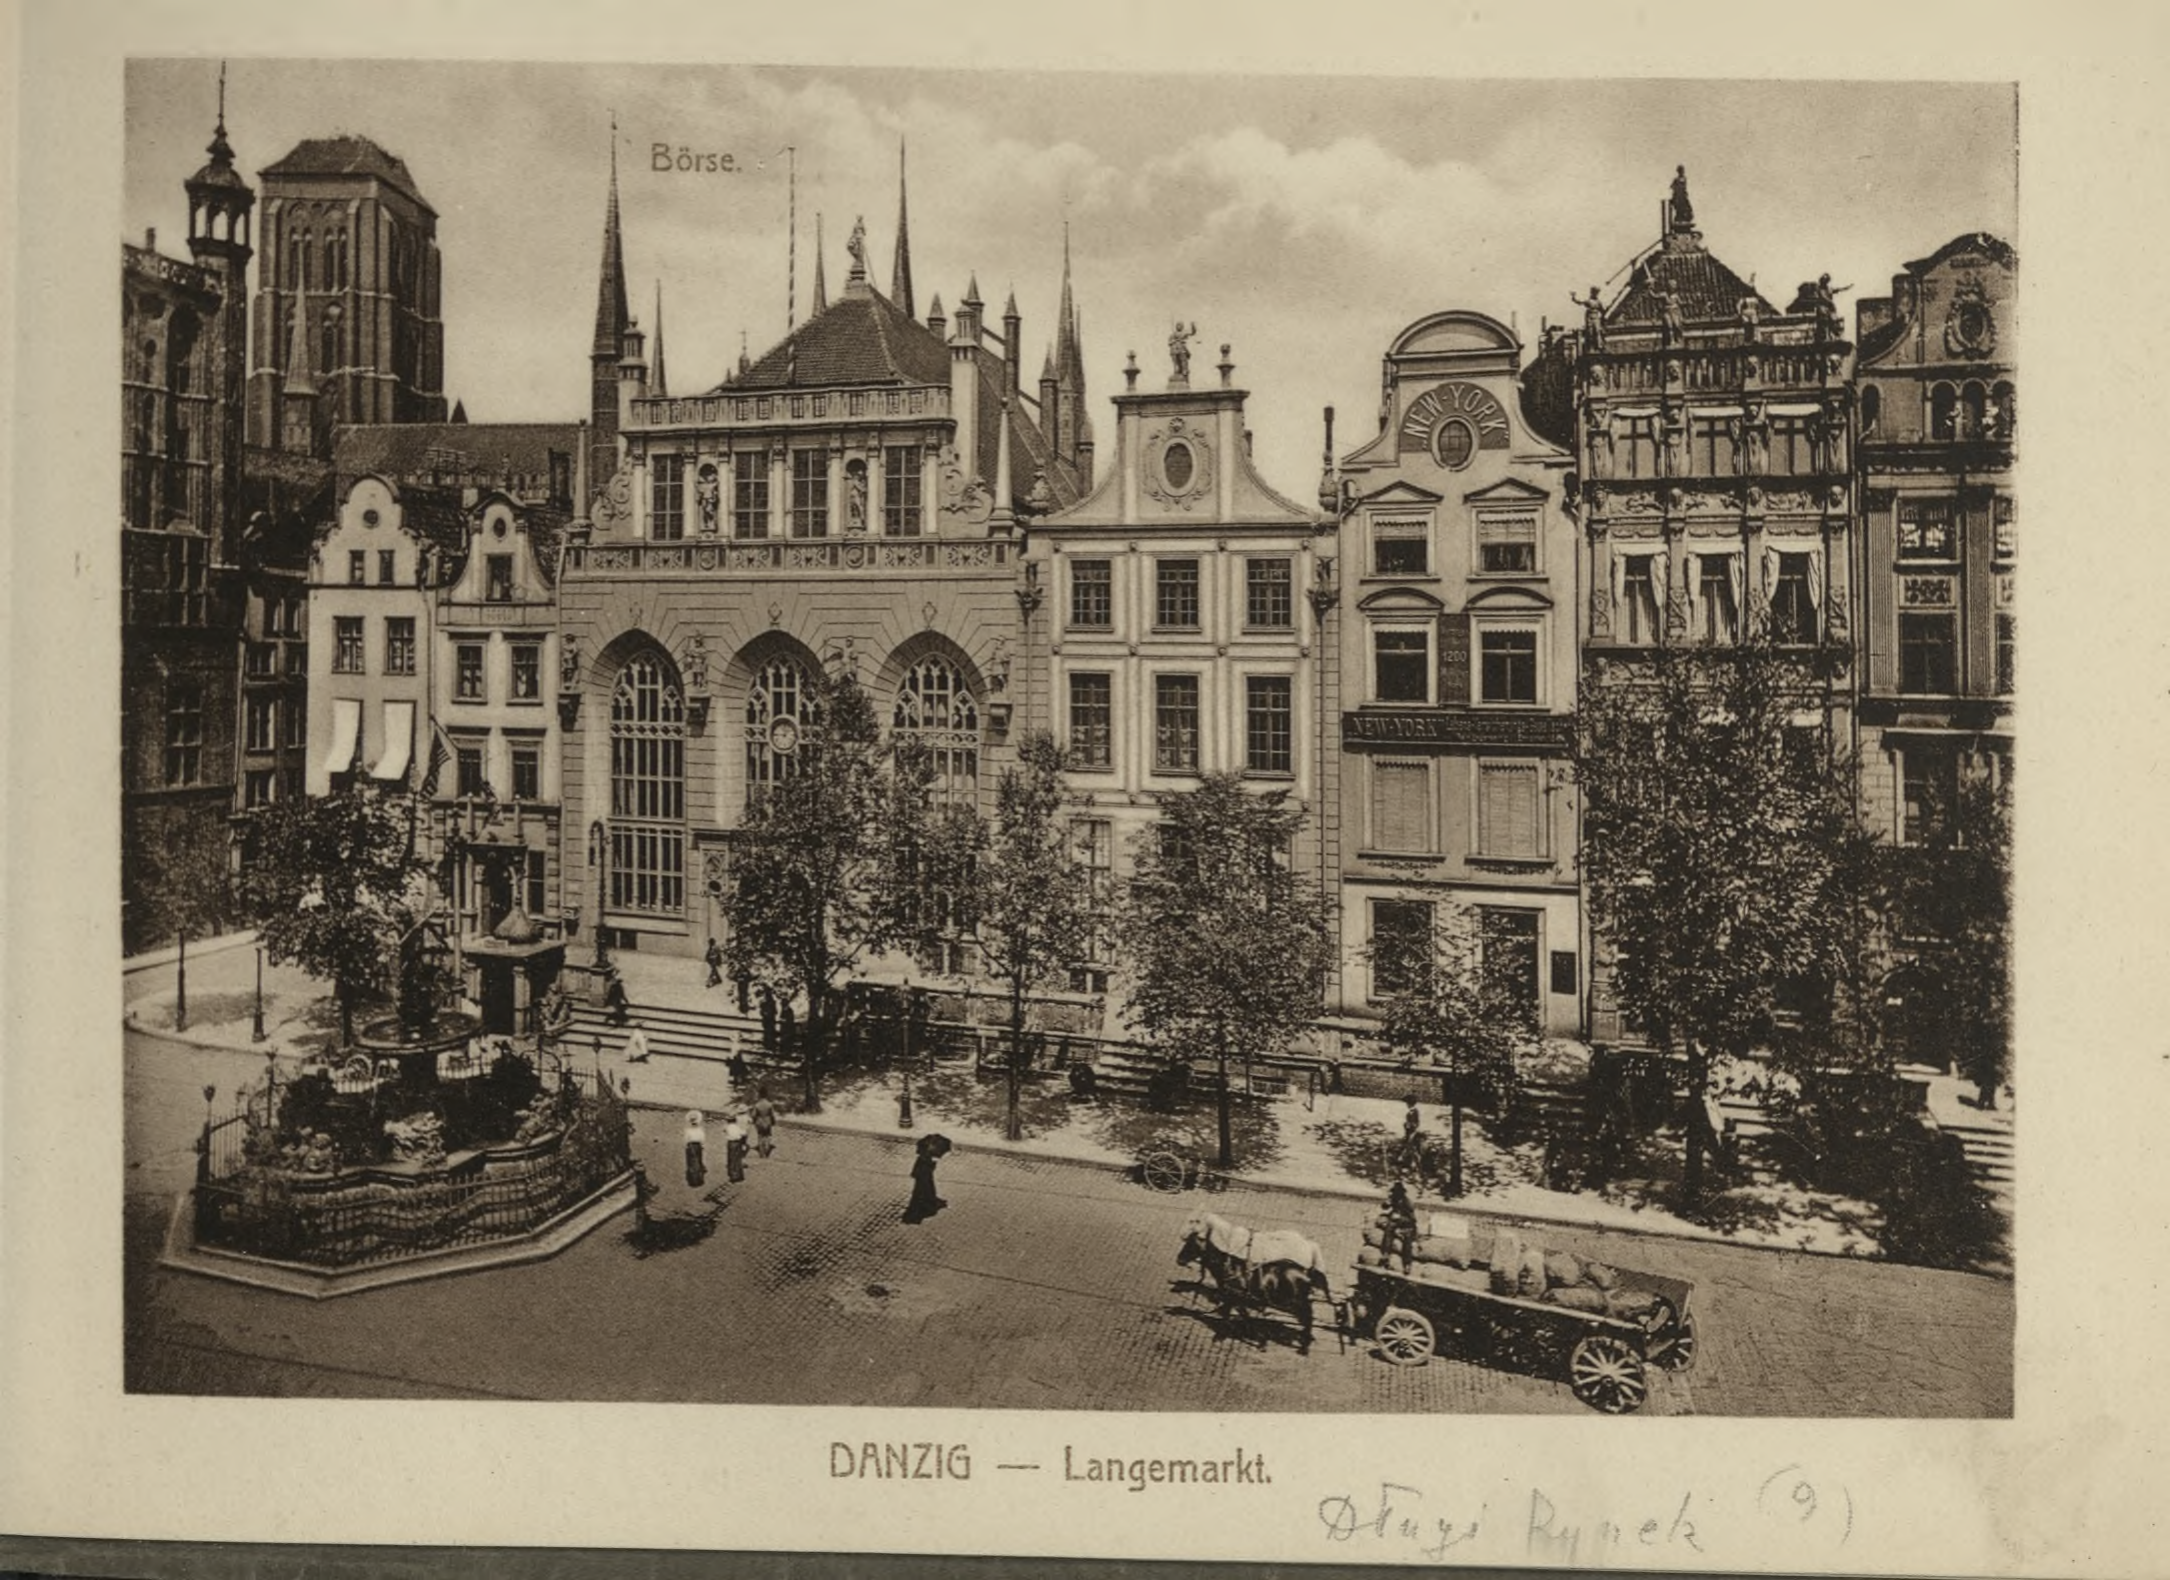 Börse.
"NEW-YORK"
1200
"NEW-YORK"
DANZIG — Langemarkt.
Długi Rynek (9)